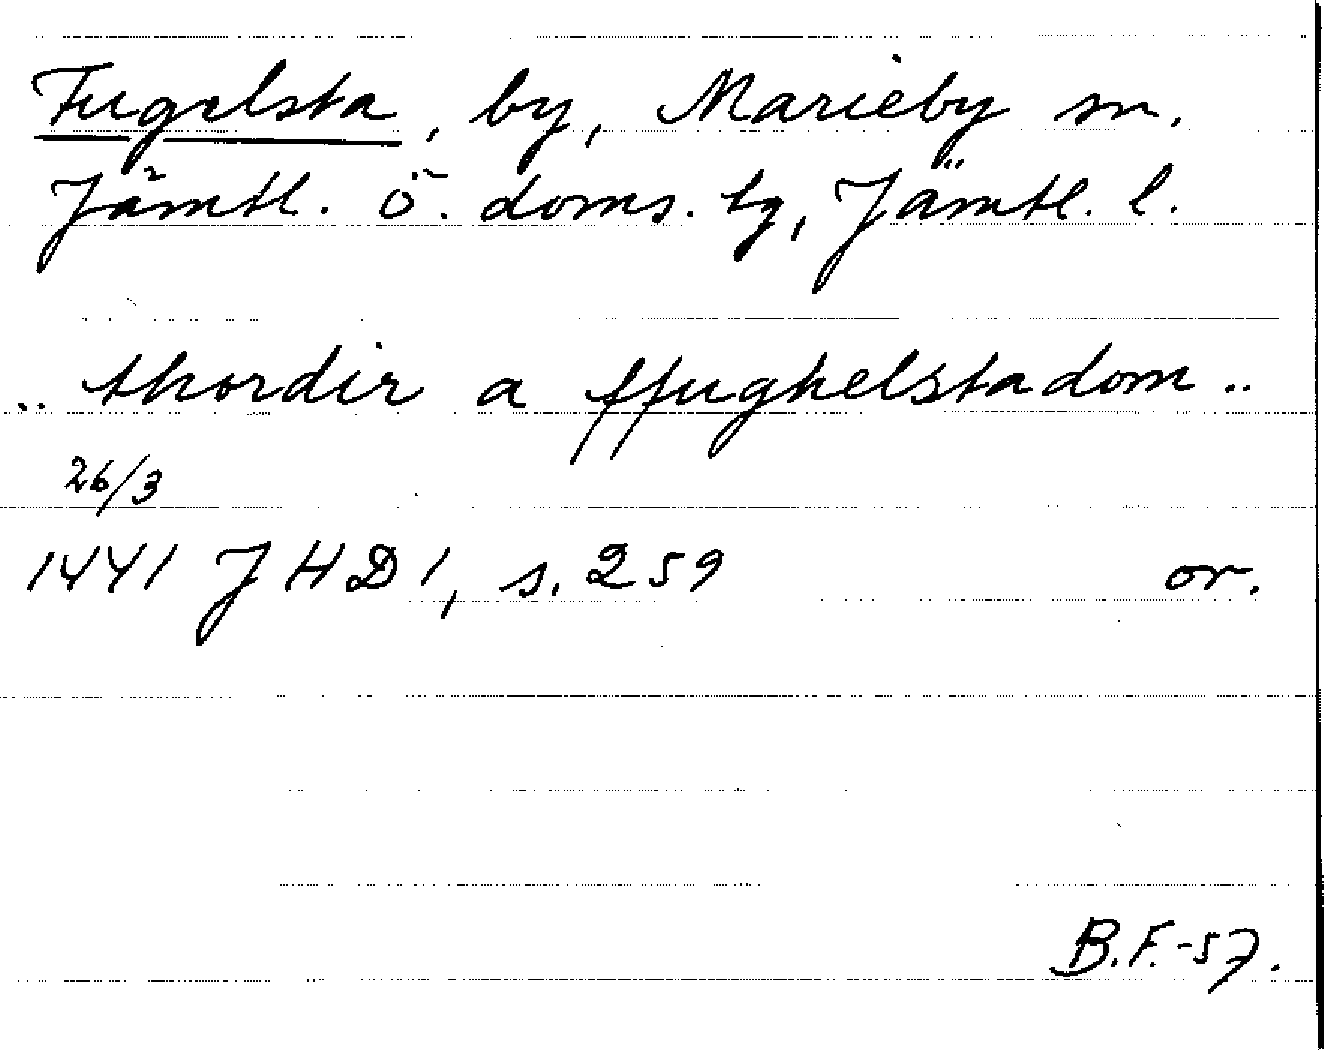 Fugelsta, by, Marieby sn.
Jämtl. ö. doms. tg, Jämtl. l.
.. thordir a ffughelstadom ..
26/3
1441 JHD 1, s. 259 or.
B.F.-57.